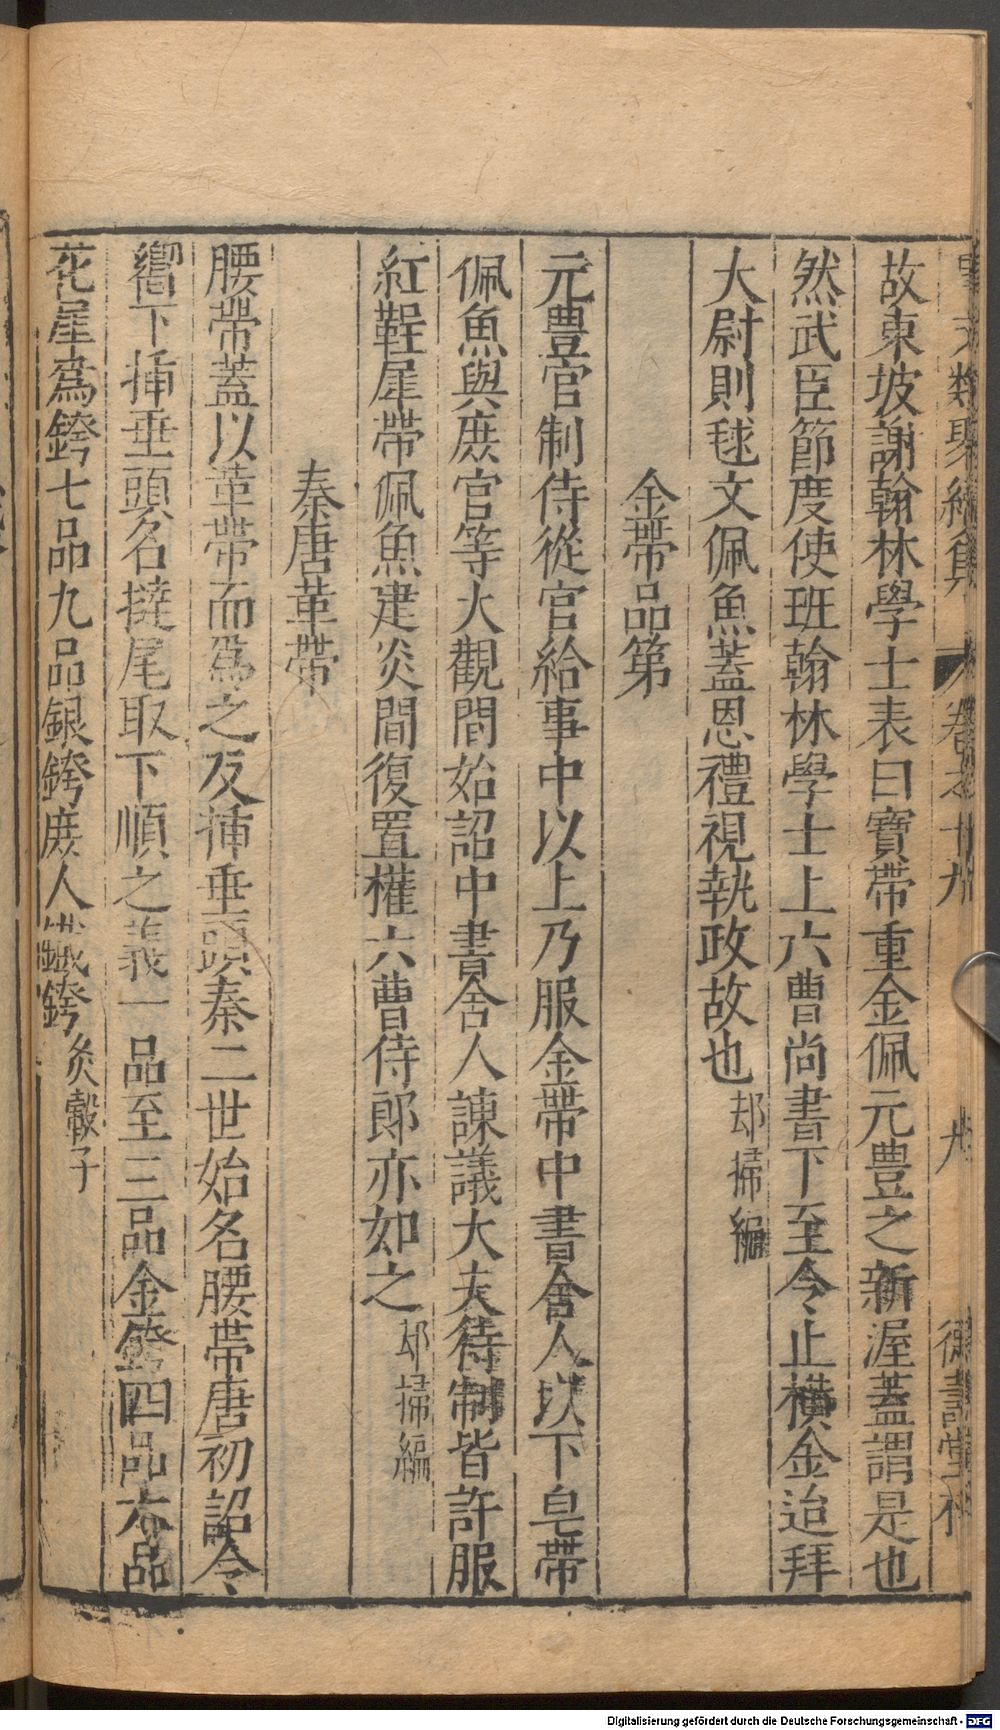 事文類聚續集 卷之廿九 九 德壽堂梓
故東坡謝翰林學士表曰寶帶重金佩元豊之新渥蓋謂是也
然武臣節度使班翰林學士上六曹尚書下至今止横金迨拜
大尉則毬文佩魚蓋恩禮視執政故也 却掃編
金帶品第
元豊官制侍從官給事中以上乃服金帶中書舍人以下皂帶
佩魚與庶官等大觀間始詔中書舍人諫議大夫待制皆許服
紅鞓犀帶佩魚建炎間復置權六曹侍郎亦如之 却掃編
秦唐革帶
腰帶蓋以革帶而爲之反揷垂頭秦二世始名腰帶唐初詔令
嚮下揷垂頭名撻尾取下順之義一品至三品金銙四品六品
花犀爲銙七品九品銀銙庶人鐵銙 炙轂子
Digitalisierung gefördert durch die Deutsche Forschungsgemeinschaft - DFG